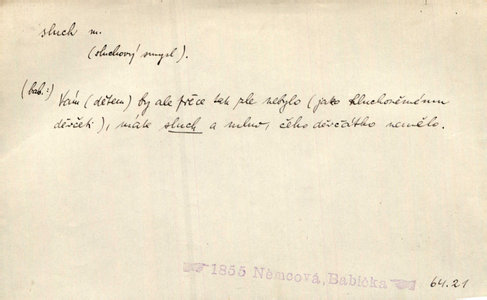 sluch m.
(sluchový smysl).
(bab.:) Vám (dětem) by ale přece tak zle nebylo (jako hluchoněmému
děvčeti), máte sluch a mluv, čeho děvčátko nemělo.
1855 Němcová, Babička
64.21